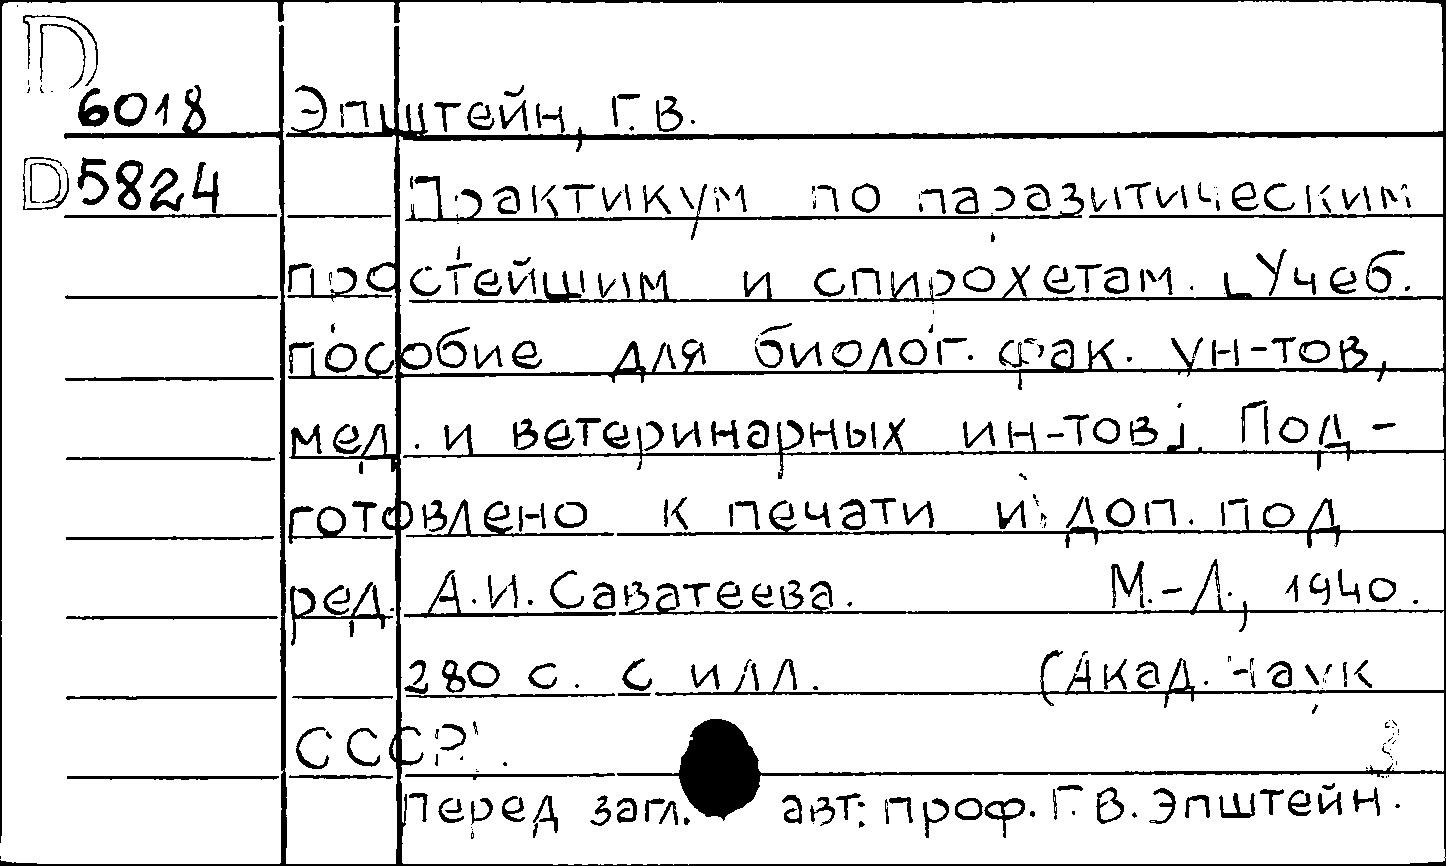 D
6018 Эпштейн, Г.В.
D 5824 Практикум по паразитическим
простейшим и спирохетам. [Учеб.
пособие для биолог. фак. ун-тов,
мед. и ветеринарных ин-тов]. Под-
готовлено к печати и доп. под
ред. А.И. Саватеева. М.-Л., 1940.
280 с. с илл. (Акад. наук
СССР).
Перед загл. авт: проф. Г.В. Эпштейн.